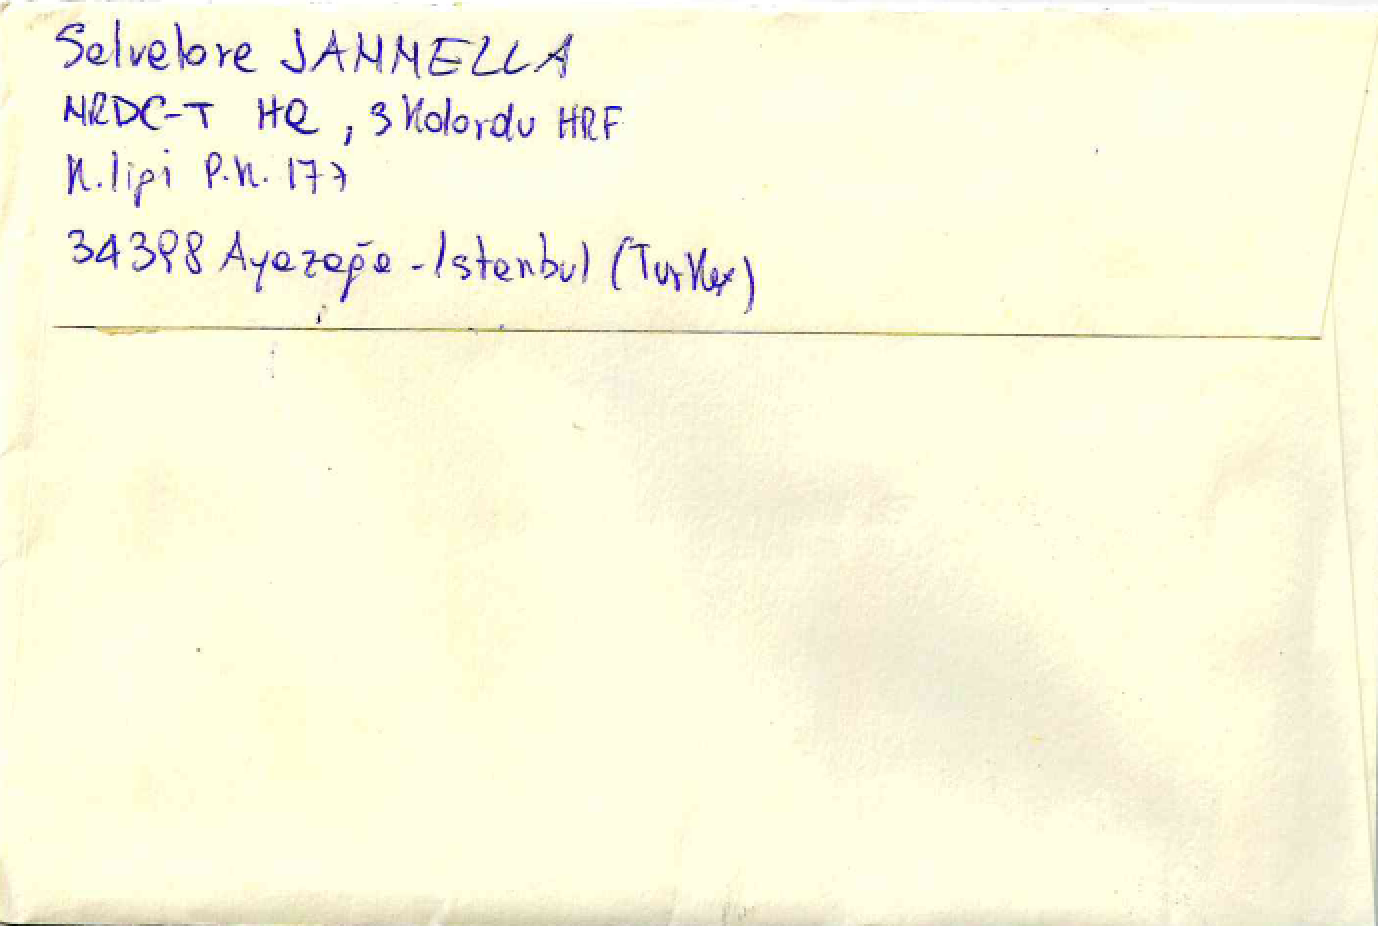 Salvatore JANNELLA
NRDC-T HQ, 3 Kolordu HRF
K.lipi P.K. 177
34398 Ayazağa - Istanbul (Turkey)